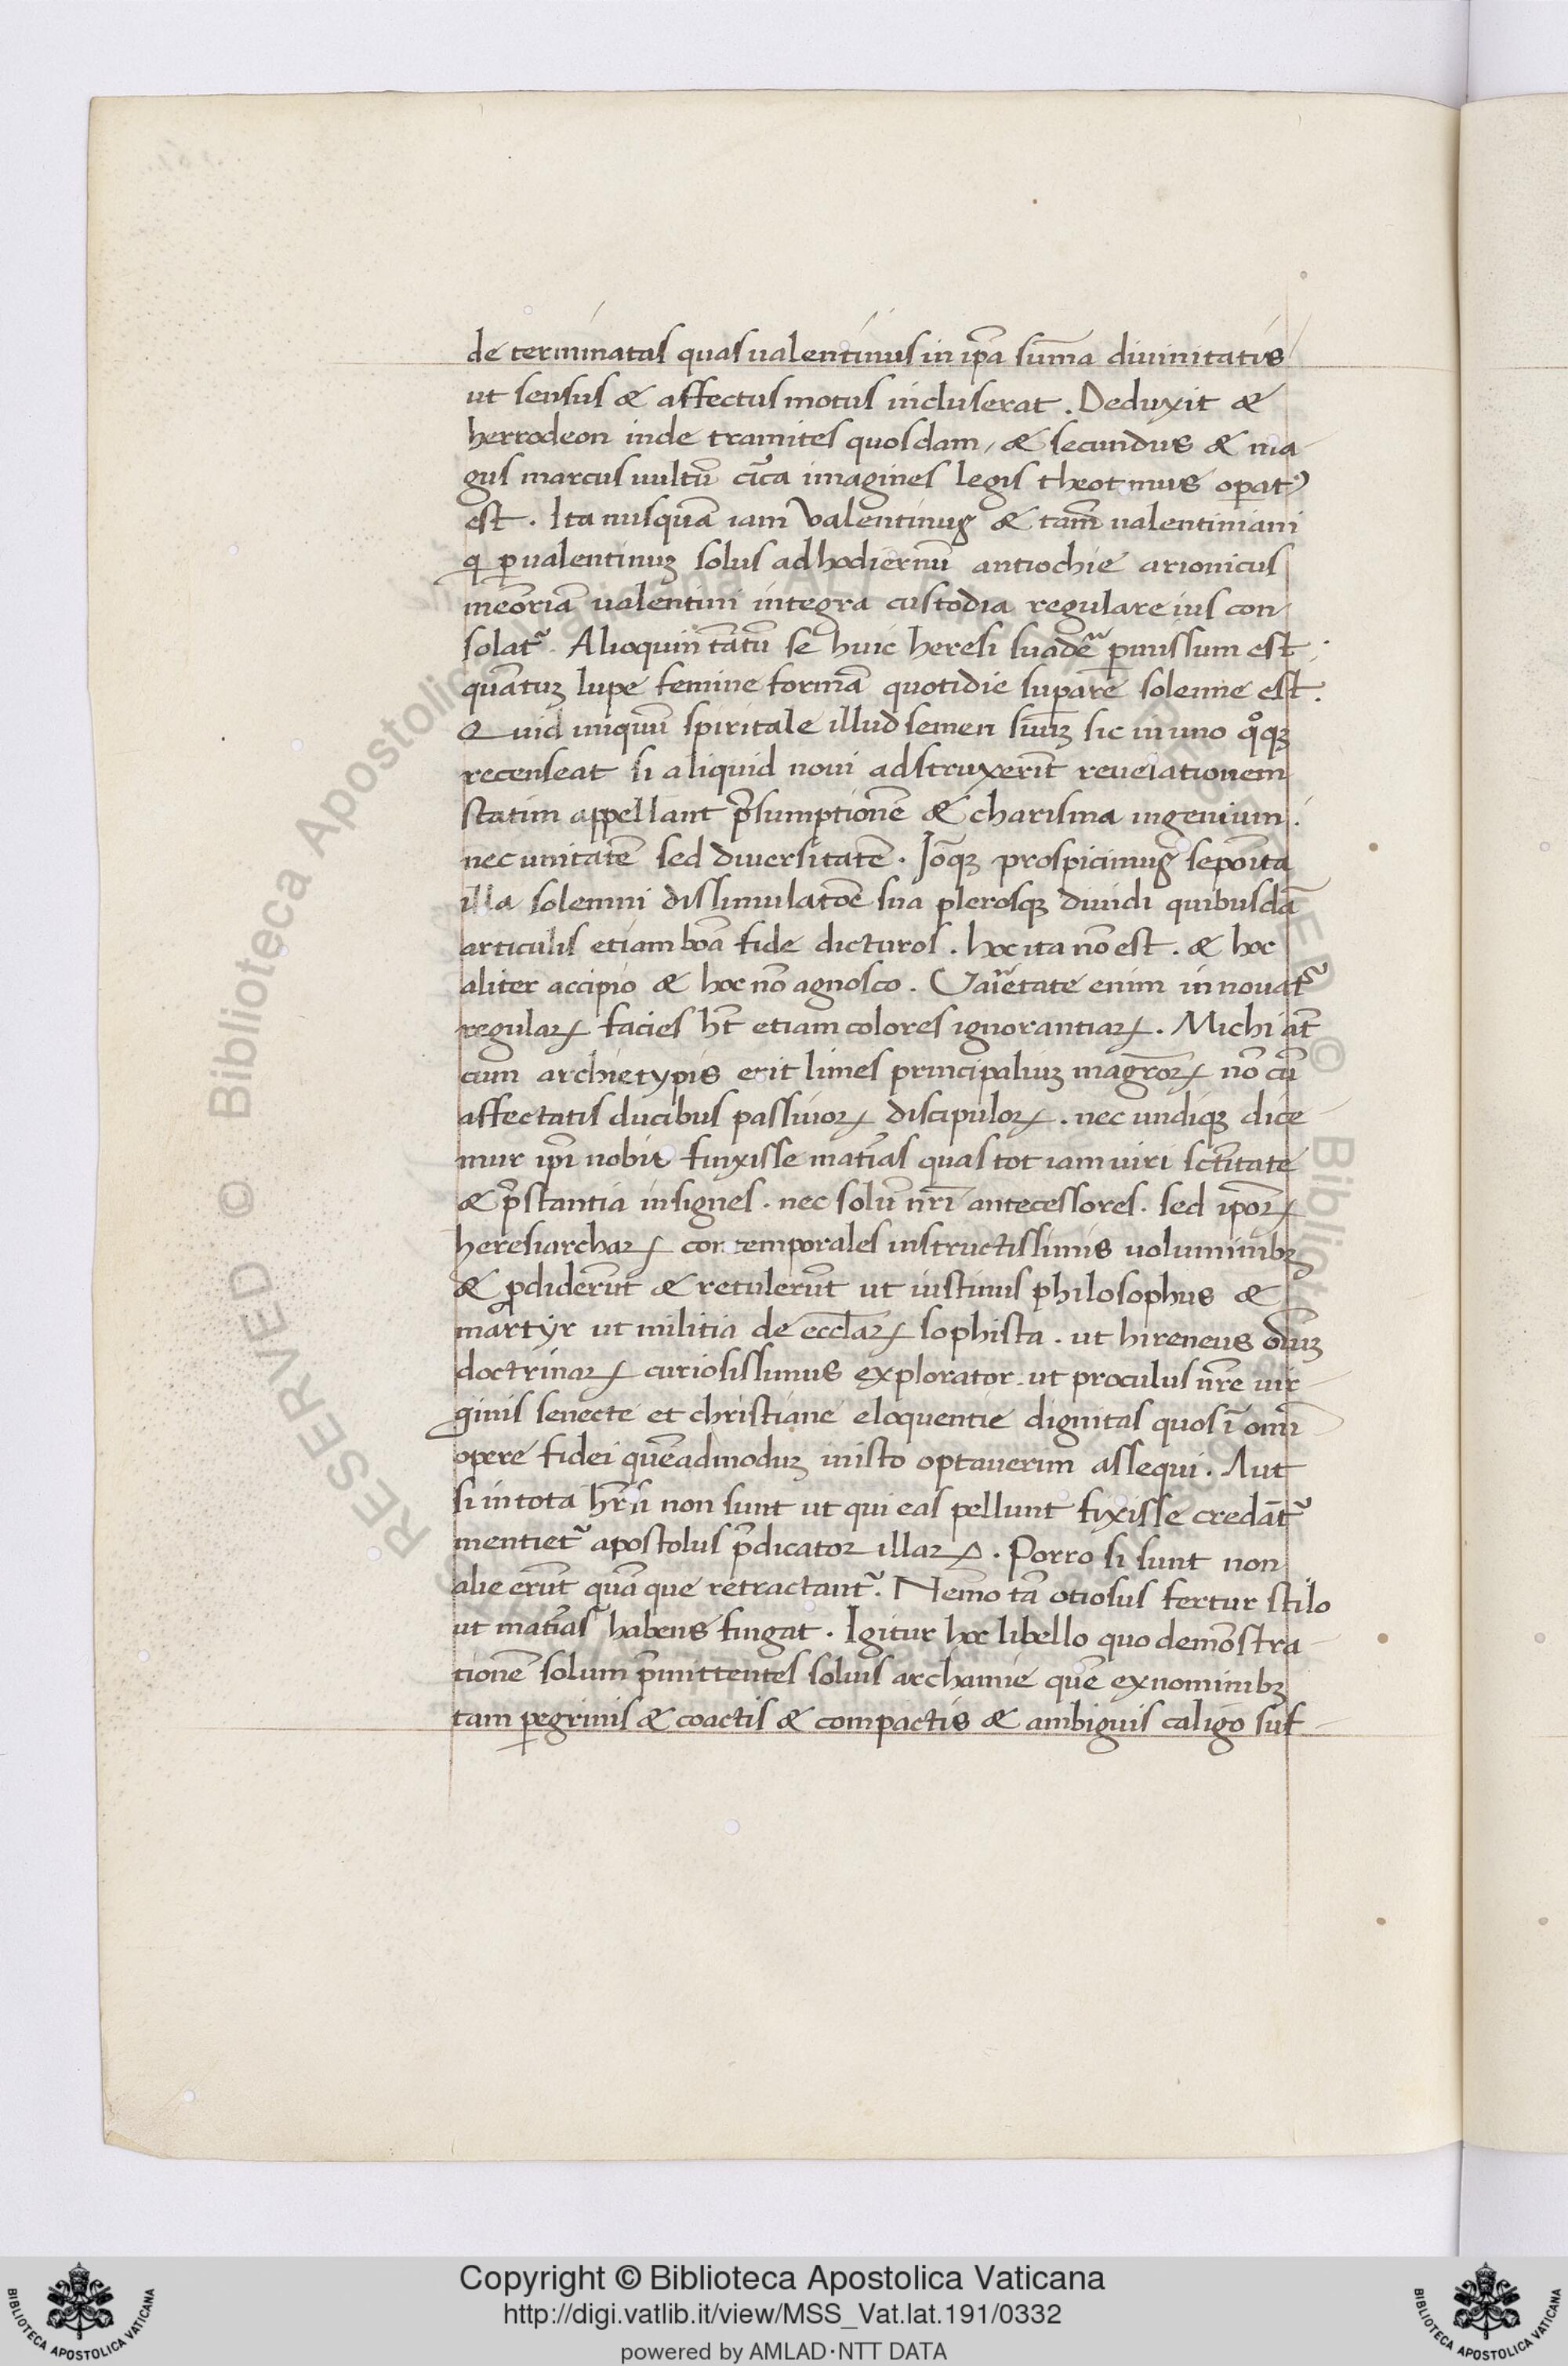 de terminatas quas ualentinus in ip̄a sum̄a diuinitatis
ut sensus & affectus motus incluserat . Deduxit &
herrodeon inde tramites quosdam , & secundus & ma-
gus marcus uultū cīca imagines legis theotimus opat᷒
est . Ita nusquā iam Valentinus & tam̄ ualentiniani
qi ꝑ ualentinuꝫ solus ad hodiernū antiochie arionicus
meōriā ualentini integra custodia regulare ius con-
solat᷒ . Alioquin tātū se huic heresi suadē ꝑmissum est .
quātuꝫ lupe femine formā quotidie supare solenne est .
Quid niquū spiritale illud semen suūꝫ sic in uno qͦqꝫ
recenseat si aliquid noui adstruxerīt reuelationem
statim appellant p̄sumptionē & charisma ingenium .
nec unitatē sed diuersitatē . Iōqꝫ prospicimus sepoīta
illa solemni dissimulatōe sua plerosqꝫ diuidi quibusdā
articulis etiam bōa fide dicturos . hoc ita nō est . & hoc
aliter accipio & hoc nō agnosco . Uaīetate enim innouat᷒
regulaꝝ facies hn̄t etiam colores ignorantiaꝝ . Michi at̄
cum archietypis erit limes principaliuꝫ magr̄oꝝ nō cū
affectatis ducibus passiuoꝝ discipuloꝝ . nec undiqꝫ dice-
mur ip̄i nobis finxisse matīas quas tot iam uiri sctītate
& p̄stantia insignes . nec solū nr̄i antecessores . sed ip̄oꝝ
heresiarchaꝝ contemporales instructissimis uoluminibꝫ
& ꝓdiderūt & retulerūt ut iustinus philosophus &
martyr ut militia de eccl̄aꝝ sophista . ut hireneus oīuꝫ
doctrinaꝝ curiosissimus explorator . ut proculus nr̄e uir-
ginis senecte et christiane eloquentie dignitas quos ī omī
opere fidei quēadmoduꝫ in isto optauerim assequi . Aut
si in tota hr̄esi non sunt ut qui eas pellunt fixisse credāt᷒
mentiet᷒ apostolus p̄dicator illaꝝ . Porro si sunt non
alie erūt quā que retractant᷒ . Nemō tā otiosus fertur stilo
ut matīas habens fingat . Igitur hoc libello quo demōstra-
tionē solum p̄mittentes soluis archanie quē ex nominibꝫ
tam ꝑegrinis & coactis & compactis & ambiguis caligo suf-
Copyright © Biblioteca Apostolica Vaticana
http://digi.vatlib.it/view/MSS_Vat.lat.191/0332
powered by AMLAD·NTT DATA